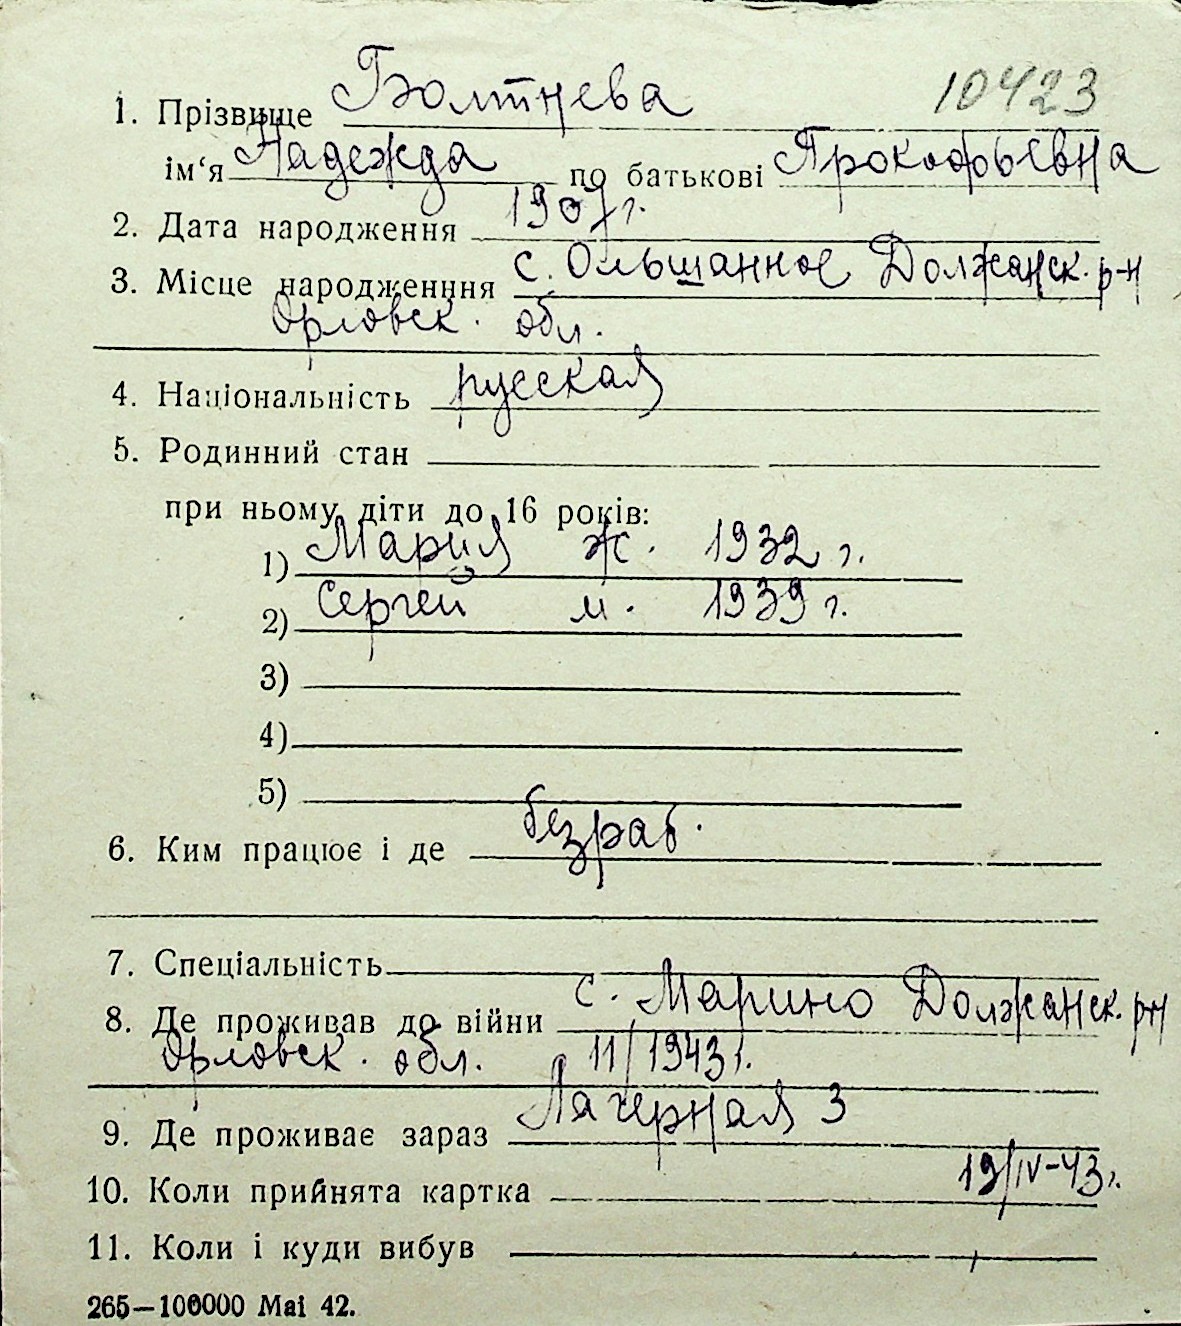 10423
1. Прізвище Болтнева
ім‘я Надежда по батькові Прокофьевна
2. Дата народження 1907 г.
3. Місце народженння с. Ольшанное Должанск. р-н
Орловск. обл.
4. Національність русская
5. Родинний стан
при ньому діти до 16 років:
1) Мария ж. 1932 г.
2) Сергей м. 1939 г.
3)
4)
5)
6. Ким працює і де безраб.
7. Спеціальність
8. Де проживав до війни с. Марино Должанск. рн
Орловск. обл. 11/1943 г.
9. Де проживає зараз Лагерная 3
10. Коли прийнята картка 19/IV-43 г.
11. Коли і куди вибув
265—100000 Mai 42.